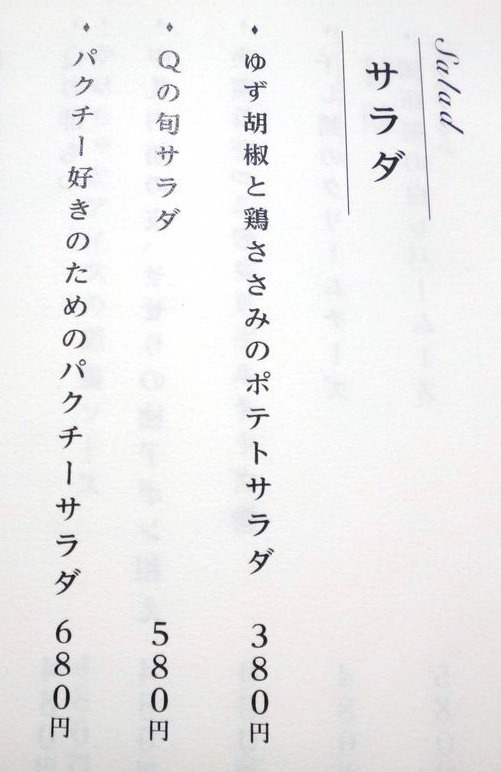 Salad
サラダ
ゆず胡椒と鶏ささみのポテトサラダ 380円
Qの旬サラダ 580円
パクチー好きのためのパクチーサラダ 680円